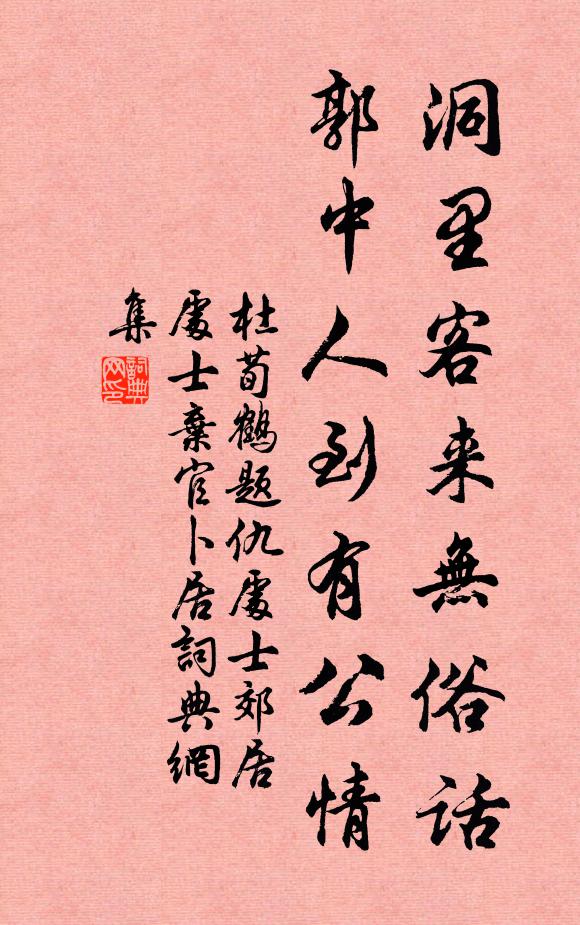 洞里客来無俗話
郭中人到有公情
杜荀鶴題仇處士郊居
處士棄官卜居詞典網
集
詞典
网印